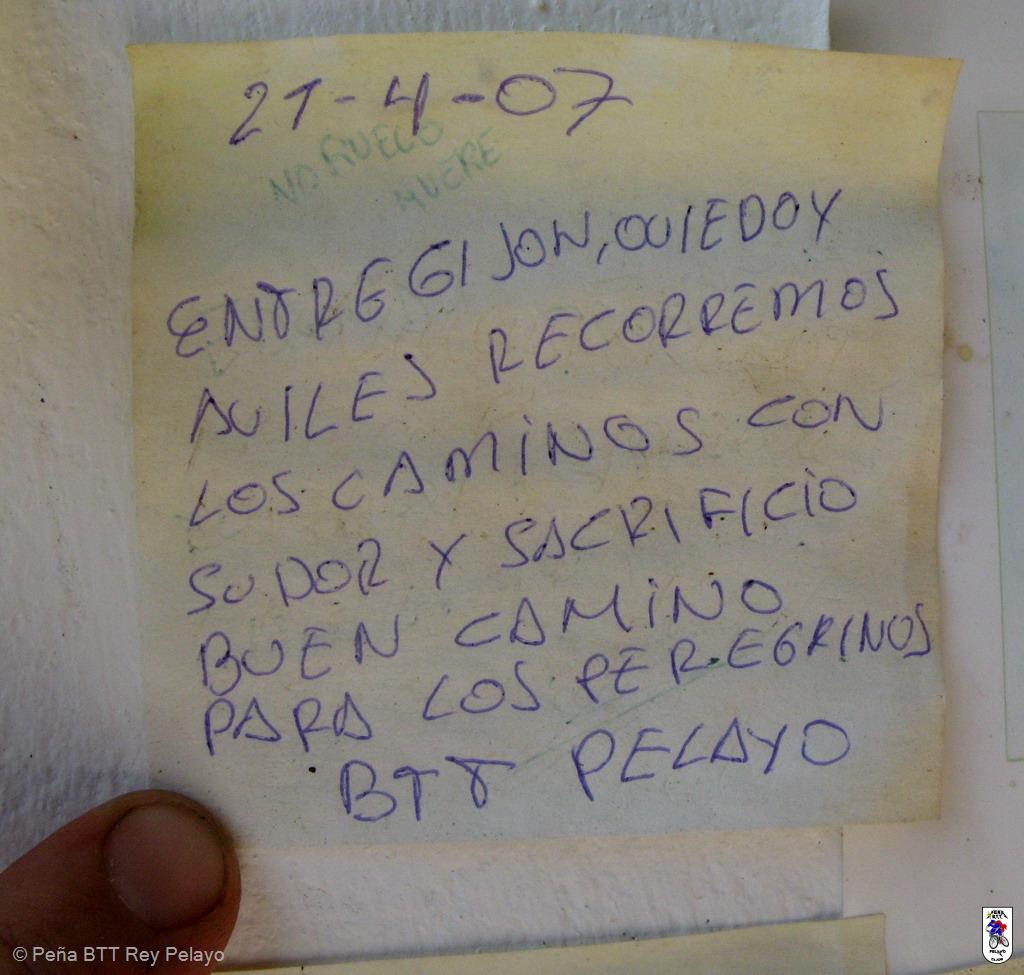 21-4-07
ENTRE GIJON, OVIEDO Y
AVILES RECORREMOS
LOS CAMINOS CON
SUDOR Y SACRIFICIO
BUEN CAMINO
PARA LOS PEREGRINOS
BTT PELAYO
© Peña BTT Rey Pelayo